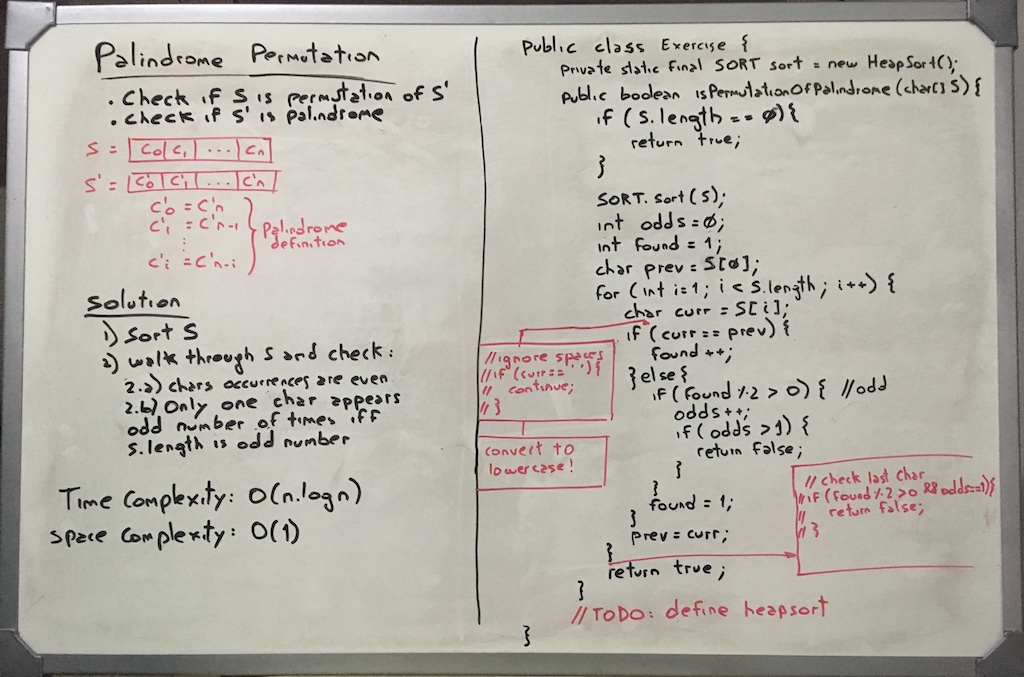 Palindrome Permutation
• Check if S is permutation of S'
• check if S' is palindrome
S = C0 C1 ... Cn
S' = C'0 C'1 ... C'n
C'0 = C'n
C'1 = C'n-1
⋮
C'i = C'n-i
} Palindrome
definition
Solution
1) Sort S
2) walk through S and check:
2.a) chars occurrences are even
2.b) Only one char appears
odd number of times iff
S.length is odd number
Time Complexity: O(n.logn)
Space Complexity: O(1)
Public class Exercise {
Private static final SORT sort = new HeapSort();
Public boolean isPermutationOfPalindrome(char[] S) {
if (S.length == 0) {
return true;
}
SORT.sort(S);
int odds = 0;
int found = 1;
char prev = S[0];
for (int i=1; i < S.length; i++) {
char curr = S[i];
if (curr == prev) {
found ++;
} else {
if (found % 2 > 0) { //odd
odds ++;
if (odds > 1) {
return false;
}
}
found = 1;
}
prev = curr;
}
return true;
}
// TODO: define heapsort
}
//ignore spaces
//if (curr == ' ') {
// continue;
// }
convert to
lowercase!
// check last char
//if (found % 2 > 0 && odds==1) {
// return false;
// }